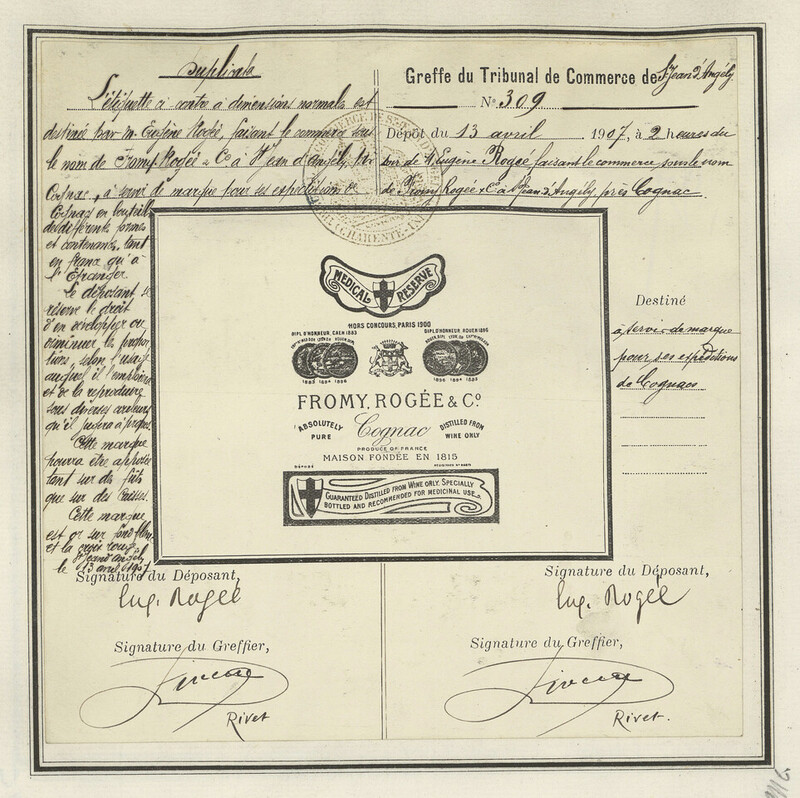 Duplicata
L'étiquette ci contre à dimensions normales est
destinée par Mr Eugène Rogée, faisant le commerce sous
le nom de Fromy Rogée & Co à St Jean d'Angély, près
Cognac, à servir de marque pour ses expéditions de
Cognacs en bouteilles
de différentes formes
et contenances, tant
en France qu'à
l'Étranger
Le déposant se
réserve le droit
d'en développer ou
diminuer les propor-
tions, selon l'usage
auquel il l'emploiera
et de la reproduire
sous diverses couleurs
qu'il jugera à propos.
Cette marque
pourra être apposée
tant sur des fûts
que sur des Caisses.
Cette marque
est or sur fond blanc
et la croix rouge
St Jean d'Angély
le 13 avril 1907
Signature du Déposant,
Eug. Rogée
Signature du Greffier,
Rivet
Greffe du Tribunal de Commerce de St Jean d'Angély
No 309
Dépôt du 13 avril 1907, à 2 heures du
soir de M. Eugène Rogée faisant le commerce sous le nom
de Fromy Rogée & Co à St Jean d'Angély, près Cognac.
MEDICAL RESERVE
HORS CONCOURS, PARIS 1900
DIPL. D'HONNEUR, CAEN 1883
DIPL. D'HONNEUR ROUEN 1896
FROMY, ROGÉE & Co
ABSOLUTELY PURE
Cognac
DISTILLED FROM WINE ONLY
PRODUCE OF FRANCE
MAISON FONDÉE EN 1815
DÉPOSÉ
GUARANTEED DISTILLED FROM WINE ONLY. SPECIALLY
BOTTLED AND RECOMMENDED FOR MEDICINAL USE.
Destiné
à servir de marque
pour ses expéditions
de Cognacs
Signature du Déposant,
Eug. Rogée
Signature du Greffier,
Rivet.